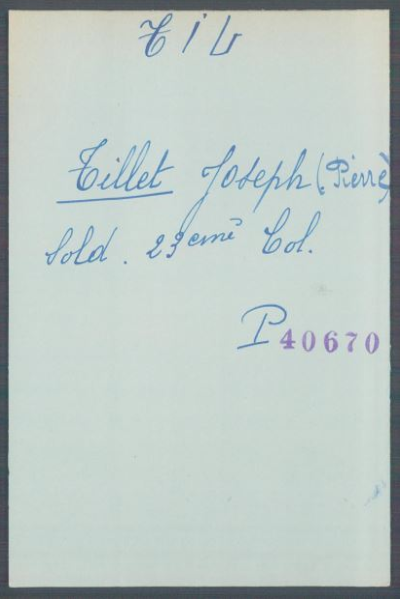 TIL
Tillet Joseph (Pierre)
Sold. 23eme Col.
P 40670